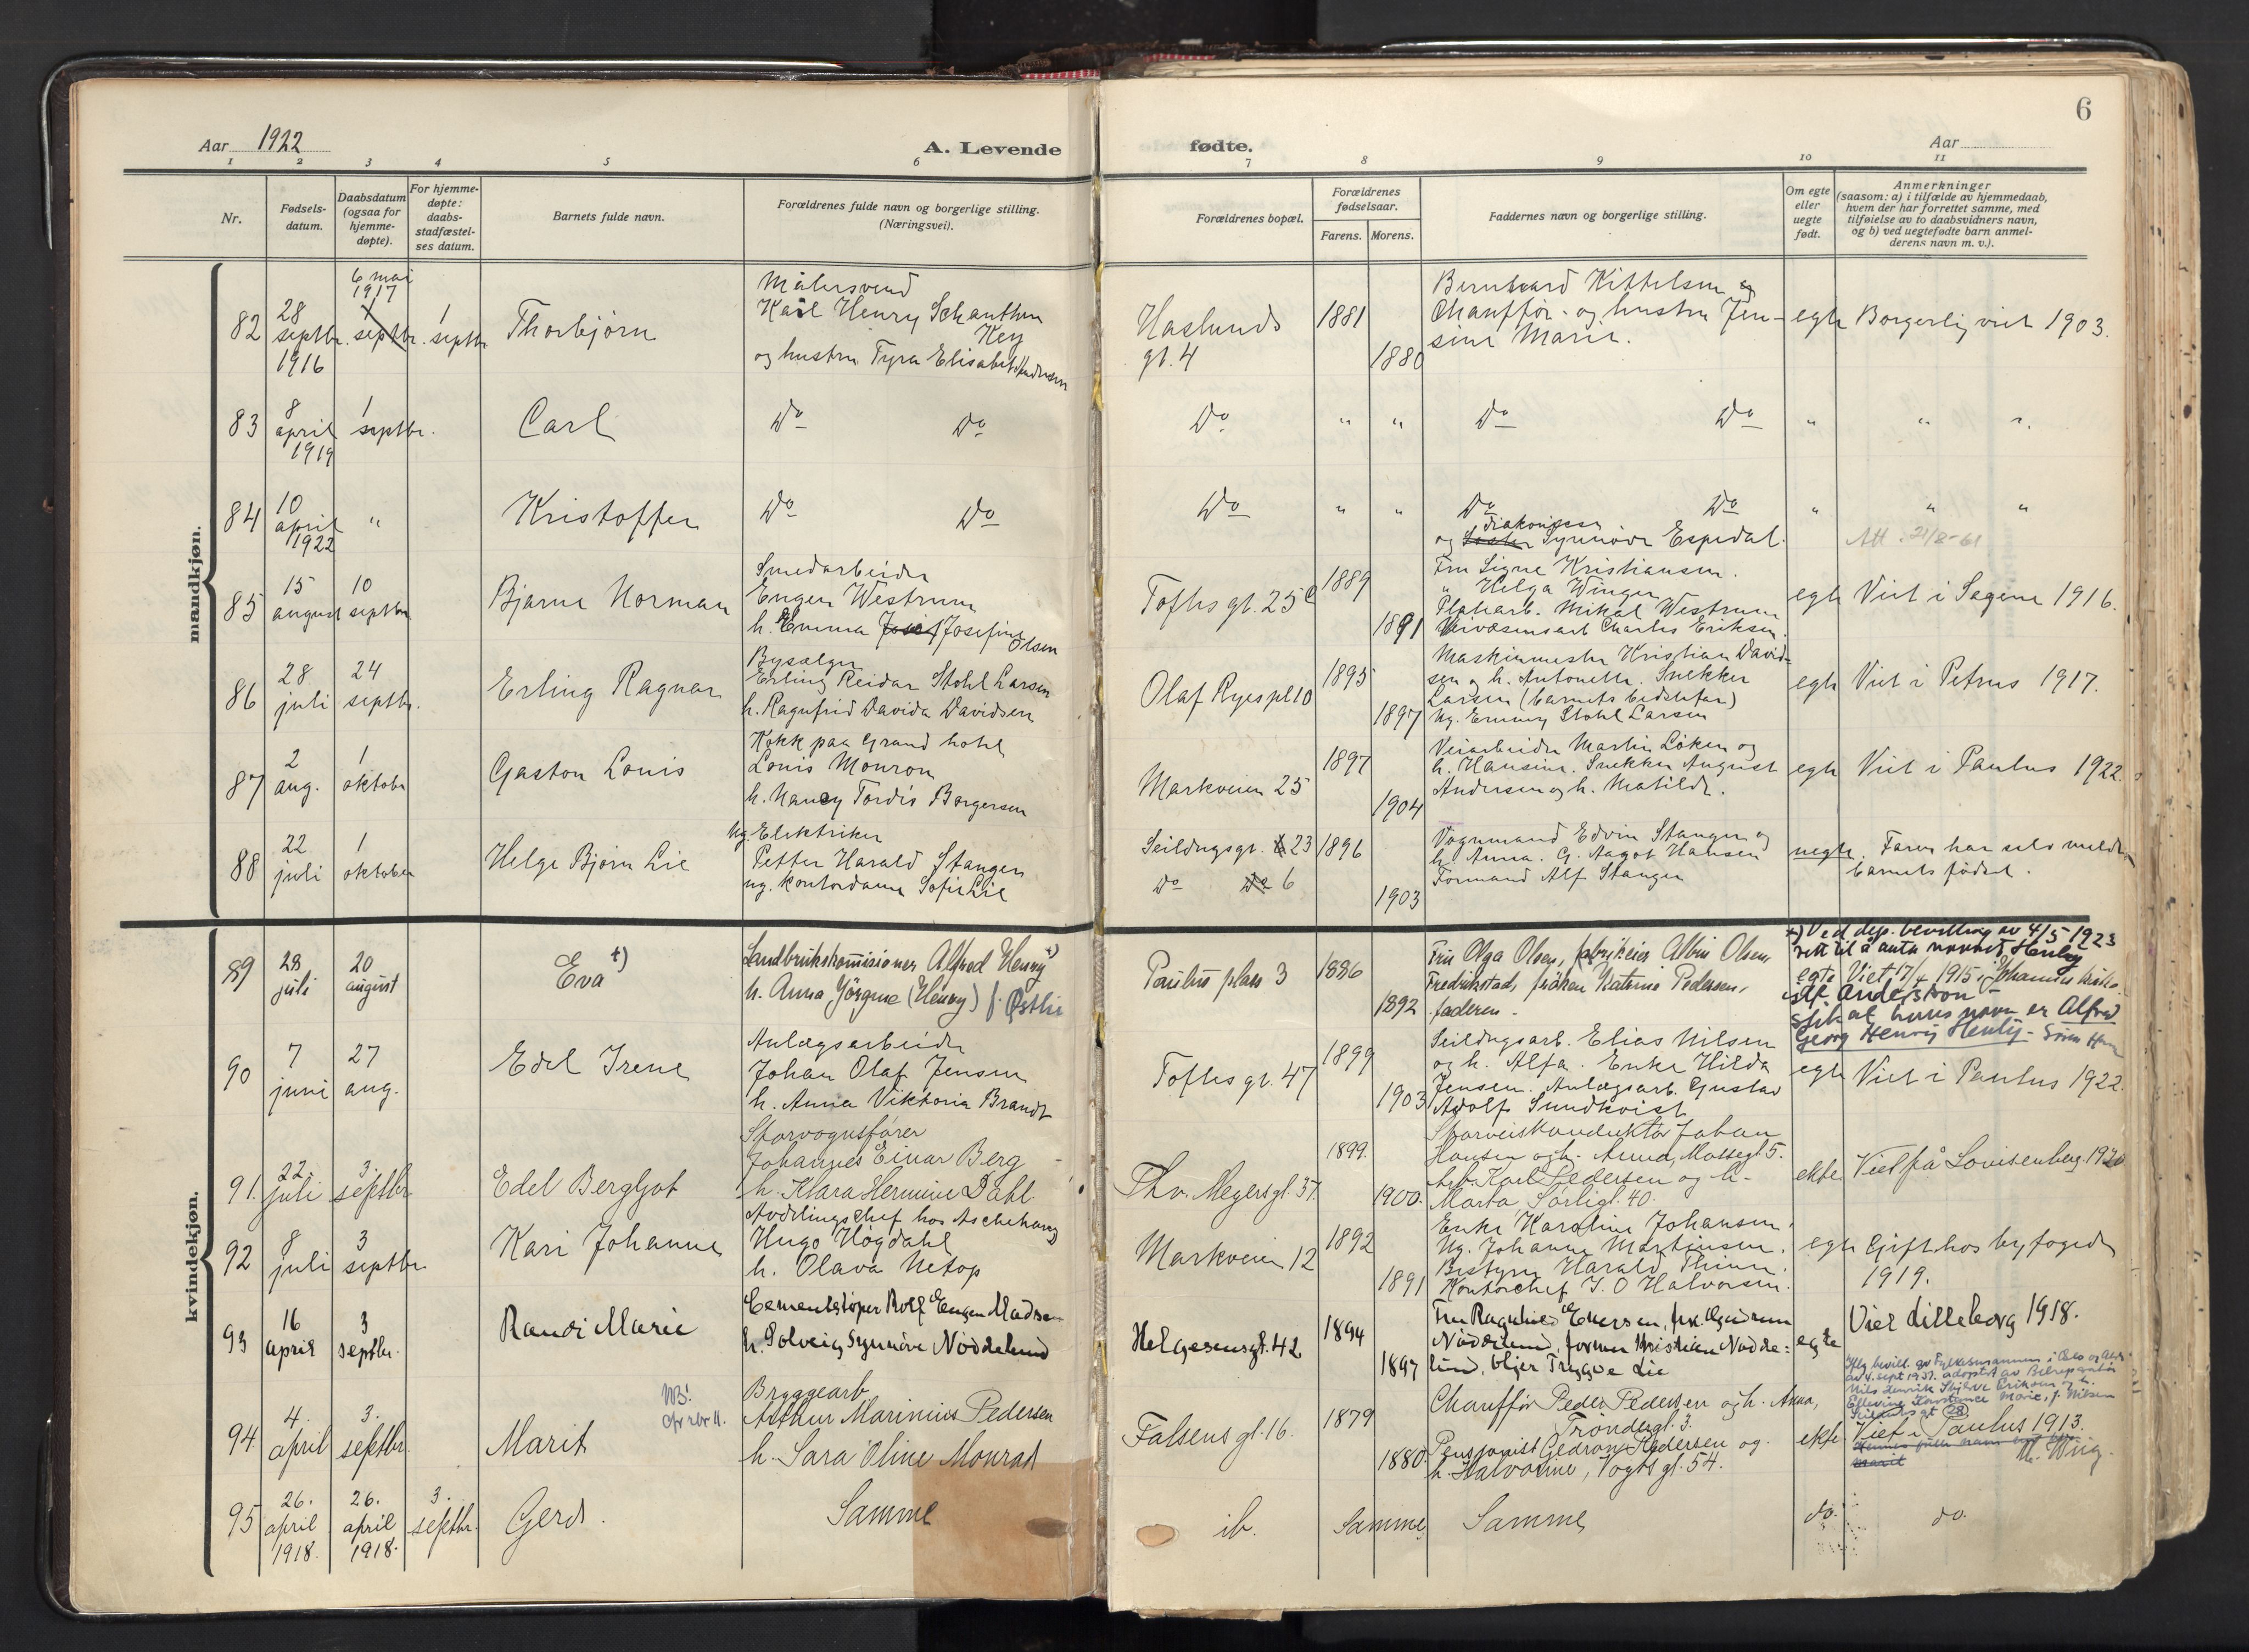 6
Aar 1922
A. Levende
fødte.
Aar
1 2 3 4 5 6 7 8 9 10 11
Nr.
Fødsels-
datum.
Daabsdatum
(ogsaa for
hjemme-
døpte).
For hjemme-
døpte:
daabs-
stadfæstel-
ses datum.
Barnets fulde navn.
Forældrenes fulde navn og borgerlige stilling.
(Næringsvei).
Forældrenes bopæl.
Forældrenes
fødselsaar.
Farens. Morens.
Faddernes navn og borgerlige stilling.
Om egte
eller
uegte
født.
Anmerkninger
(saasom: a) i tilfælde av hjemmedaab,
hvem der har forrettet samme, med
tilføielse av to daabsvidners navn,
og b) ved uegtefødte barn anmel-
derens navn m. v.).
mandkjøn.
82
28
septbr.
1916
6 mai
1917
1
septbr.
1
septbr
Thorbjørn
Malersvend
Karl Henry Schanthun
Key
og hustru Tyra Elisabeth Knudsen
Haslunds
gt. 4
1881
1880
Bernhard Kittelsen og
Chauffør - og hustru Jen-
sine Marie.
egte
Borgerlig viet 1903.
83
8
april
1919
1
septbr.
Carl
Do Do
Do
" "
Do Do
"
" "
84
10
april
1922
"
Kristoffer
Do Do
Do
" "
Do Do
diakonisse
og Søster Synnøve Espedal.
"
" "
Att. 21/8-61
85
15
august
10
septbr
Bjarne Norman
Smedarbeider
Eugen Westrum
h. Emma Josef Josefine
Olsen
Toftesgt. 25 c
1889
1891
Fru Signe Kristiansen.
" Helga Winger
Platearb. Mikal Westrum
Veivæsensarb Charles Eriksen.
egte
Viet i Sagene 1916.
86
28
juli
24
septbr.
Erling Ragnar
Bysælger
Erling Reidar Stohl Larsen
h. Ragnfrid Davida Davidsen
Olaf Ryes pl 10
1895
1897
Maskinmester Kristian David-
sen og h. Antonette. Snekker
Larsen (barnets bedstefar)
Ug. Emmy Stohl Larsen
egte
Viet i Petrus 1917.
87
2
aug.
1
oktober
Gaston Louis
Kokk paa Grand hotel
Louis Mouron
h. Nancy Tordis Borgersen
Markveien 25
1897
1904
Veiarbeider Martin Løken og
h. Hansine. Snekker August
Andersen og h. Matilde.
egte
Viet i Paulus 1922.
88
22
juli
1
oktober
Helge Bjørn Lie
Ug. Elektriker
Petter Harald Stangen
ug. kontordame Sofie Lie
Seildugsgt. 23
Do Do 6
1896
1903
Vognmand Edvin Stangen og
h. Anna. G. Aagot Hansen
Formand Alf Stangen
uegte.
Faren har selv meldt
barnets fødsel.
kvindekjøn.
89
28
juli
20
august
Eva +)
Landbrukskommisioner Alfred Henry +)
h. Anna Jörgine (Henry) f. Østlie
Paulus plass 3
1886
1892
Fru Olga Olsen, fabrikeier Albin Olsen,
Fredrikstad, frøken Katrine Pedersen,
faderen.
+) Ved dep. bevilling av 4/5 1923
rett til å anta navnet Henly
egte Viet 17/4 1915 i Johannes kirke.
Anderson
slik at hans navn er Alfred
Georg Henry Henly -
90
7
juni
27
aug.
Edel Irene
Anlægsarbeider
Johan Olaf Jensen
h. Anna Viktoria Brandt
Toftesgt. 47
1899
1903
Seildugsarb. Elias Nilsen
og h. Alfa. Enke Hilda
Jensen. Anlægsarb. Gustav
Adolf Sundkvist
egte
Viet i Paulus 1922.
91.
22.
juli
3.
septbr.
Edel Bergljot
Sporvognsfører
Johannes Einar Berg
h. Klara Hermine Dahl.
Thv. Meyersgt. 37.
1899.
1900.
Sporveiskonduktør Johan
Hansen og h. Anna, Mossegt 5.
Arb. Karl Pedersen og h.
Marta, Sørligt. 40.
ekte.
Viet på Lovisenberg. 1920
92
8
juli
3
septbr.
Kari Johanne
Avdelingschef hos Aschehoug
Hugo Høgdahl
h. Olava Netop
Markveien 12
1892
1891
Enke Karoline Johansen.
Ug. Johanne Martinsen.
Bestyrer Harald Thinn.
Kontorchef J. O Halvorsen.
egte
Gift hos byfogden
1919.
93
16
april
3
septbr.
Randi Marie
Cementstøper Rolf Eugen Madsen
h. Solveig Synnöve Nöddelund
Helgesensgt. 42
1894
1897
Fru Ragnhild Evensen, frk. Gudrun
Nöddelund, forman Kristian Nödde=
lund, Trygve Lie
egte
Viet Lilleborg 1918.
94.
4.
april
3.
septbr.
Marit
NB!
cfr rbr 11.
Bryggearb.
Arthur Marinius Pedersen
h. Sara Oline Monrad
Falsens gt. 16.
1879
1880.
Chauffør Peder Pedersen og h. Anna,
Trøndergt. 3.
Pensjonist Gedron Pedersen og
h. Halvorine, Vogts gt. 54.
ekte
Iflg. bevill. av Fylkesmannen i Oslo og Akers
av 4. sept 1937. adoptert av
Nils Henrik Eriksen og h.
Ellevine Konstance Marie, f. Nilsen
gt 28
Viet i Paulus 1913.
Marit
95
26.
april
1918.
26.
april
1918.
3.
septbr.
Gerd.
Samme
ib.
Samme
Samme
do.
do.